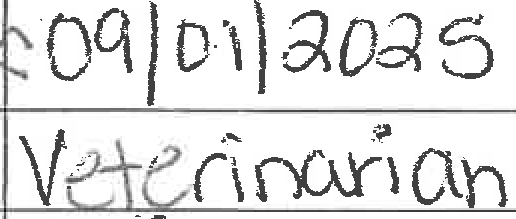 09/01/2025
Veterinarian